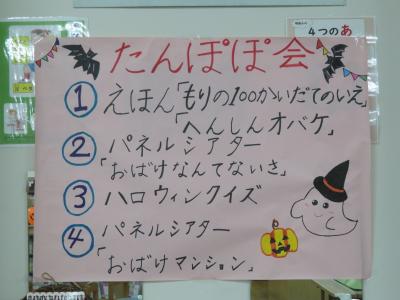 たんぽぽ会
① えほん「もりの100かいだてのいえ」
「へんしんオバケ」
② パネルシアター
「おばけなんてないさ」
③ ハロウィンクイズ
④ パネルシアター
「おばけマンション」
4つのあ